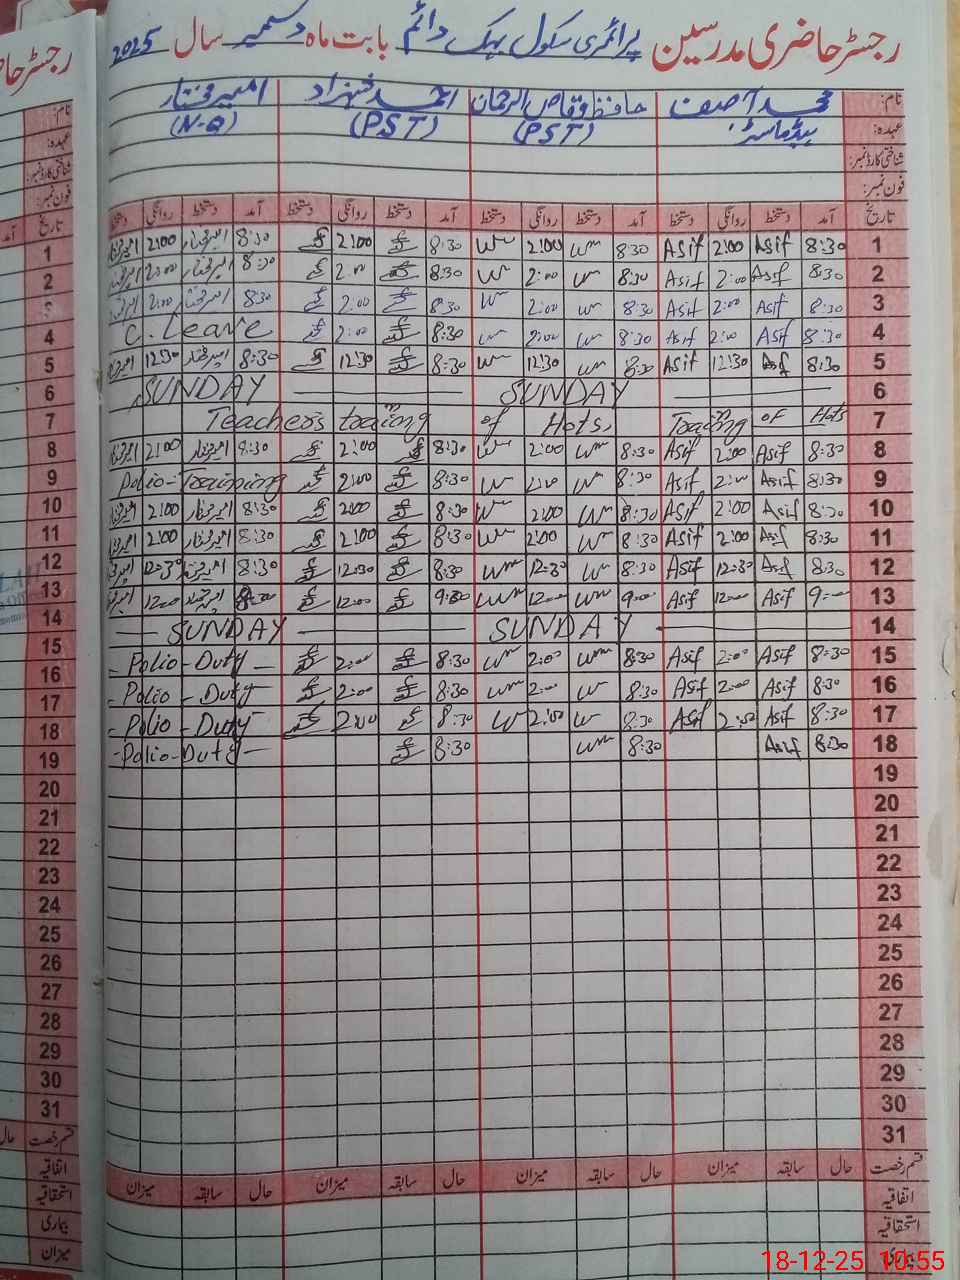 رجسٹر حاضری مدرسین پرائمری سکول بابت ماہ دسمبر سال 2025
نام: محمد آصف حافظ وقاص الرحمان احمد شہزاد امیر مختار
عہدہ: ہیڈماسٹر (PST) (PST) (N-Q)
شناختی کارڈ نمبر:
فون نمبر:
تاریخ آمد دستخط روانگی دستخط آمد دستخط روانگی دستخط آمد دستخط روانگی دستخط آمد دستخط روانگی دستخط
1 8:30 Asif 2:00 Asif 8:30 2:00 8:30 2:00 8:30 امیر مختار 2:00 امیر مختار
2 8:30 Asif 2:00 Asif 8:30 2:00 8:30 2:00 8:30 امیر مختار 2:00 امیر مختار
3 8:30 Asif 2:00 Asif 8:30 2:00 8:30 2:00 8:30 امیر مختار 2:00 امیر مختار
4 8:30 Asif 2:00 Asif 8:30 2:00 8:30 2:00 C. Leave
5 8:30 Asif 12:30 Asif 8:30 12:30 8:30 12:30 8:30 امیر مختار 12:30 امیر مختار
6 SUNDAY SUNDAY
7 Teacher's training of Hots, Training of Hots
8 8:30 Asif 2:00 Asif 8:30 2:00 8:30 2:00 8:30 امیر مختار 2:00 امیر مختار
9 8:30 Asif 2:00 Asif 8:30 2:00 8:30 2:00 Polio-Training
10 8:30 Asif 2:00 Asif 8:30 2:00 8:30 2:00 8:30 امیر مختار 2:00 امیر مختار
11 8:30 Asif 2:00 Asif 8:30 2:00 8:30 2:00 8:30 امیر مختار 2:00 امیر مختار
12 8:30 Asif 12:30 Asif 8:30 12:30 8:30 12:30 8:30 امیر مختار 12:30 امیر مختار
13 9:00 Asif 12:00 Asif 9:00 12:00 9:00 12:00 امیر مختار 12:00 امیر مختار
14 SUNDAY SUNDAY
15 8:30 Asif 2:00 Asif 8:30 2:00 8:30 2:00 -Polio-Duty-
16 8:30 Asif 2:00 Asif 8:30 2:00 8:30 2:00 -Polio-Duty
17 8:30 Asif 2:00 Asif 8:30 2:00 8:30 2:00 -Polio-Duty
18 8:30 Asif 8:30 8:30 -Polio-Duty-
19
20
21
22
23
24
25
26
27
28
29
30
31
قسم رخصت حال سابقہ میزان حال سابقہ میزان حال سابقہ میزان حال سابقہ میزان
اتفاقیہ
استحقاقیہ
بیماری
18-12-25 10:55
رجسٹر
نام:
عہدہ:
شناختی کارڈ نمبر:
فون نمبر:
تاریخ
1
2
3
4
5
6
7
8
9
10
11
12
13
14
15
16
17
18
19
20
21
22
23
24
25
26
27
28
29
30
31
قسم رخصت حال
اتفاقیہ
استحقاقیہ
بیماری
میزان